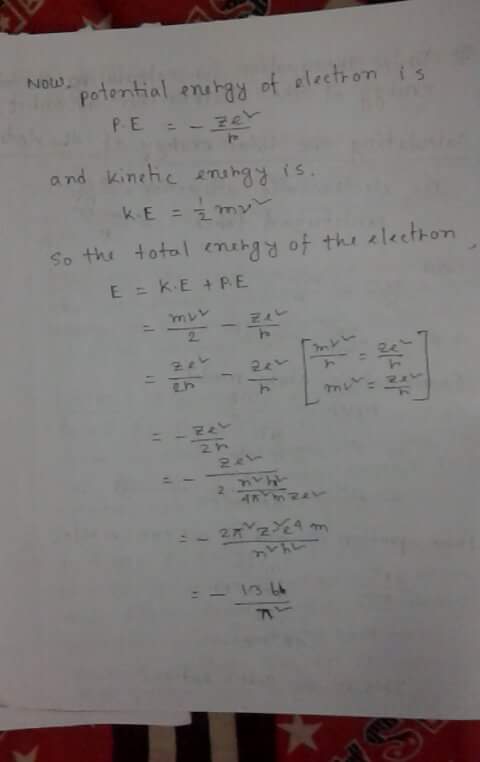 Now, potential energy of electron is
P.E = - ze²/r
and kinetic energy is.
K.E = ½ mv²
So the total energy of the electron,
E = K.E + P.E
= mv²/2 - ze²/r
= ze²/2r - ze²/r [mv²/r = ze²/r
mv² = ze²/r]
= - ze²/2r
= - ze²/2 n²h²/4π²mze²
= - 2π²z²e4 m/n²h²
= - 13.6/n²